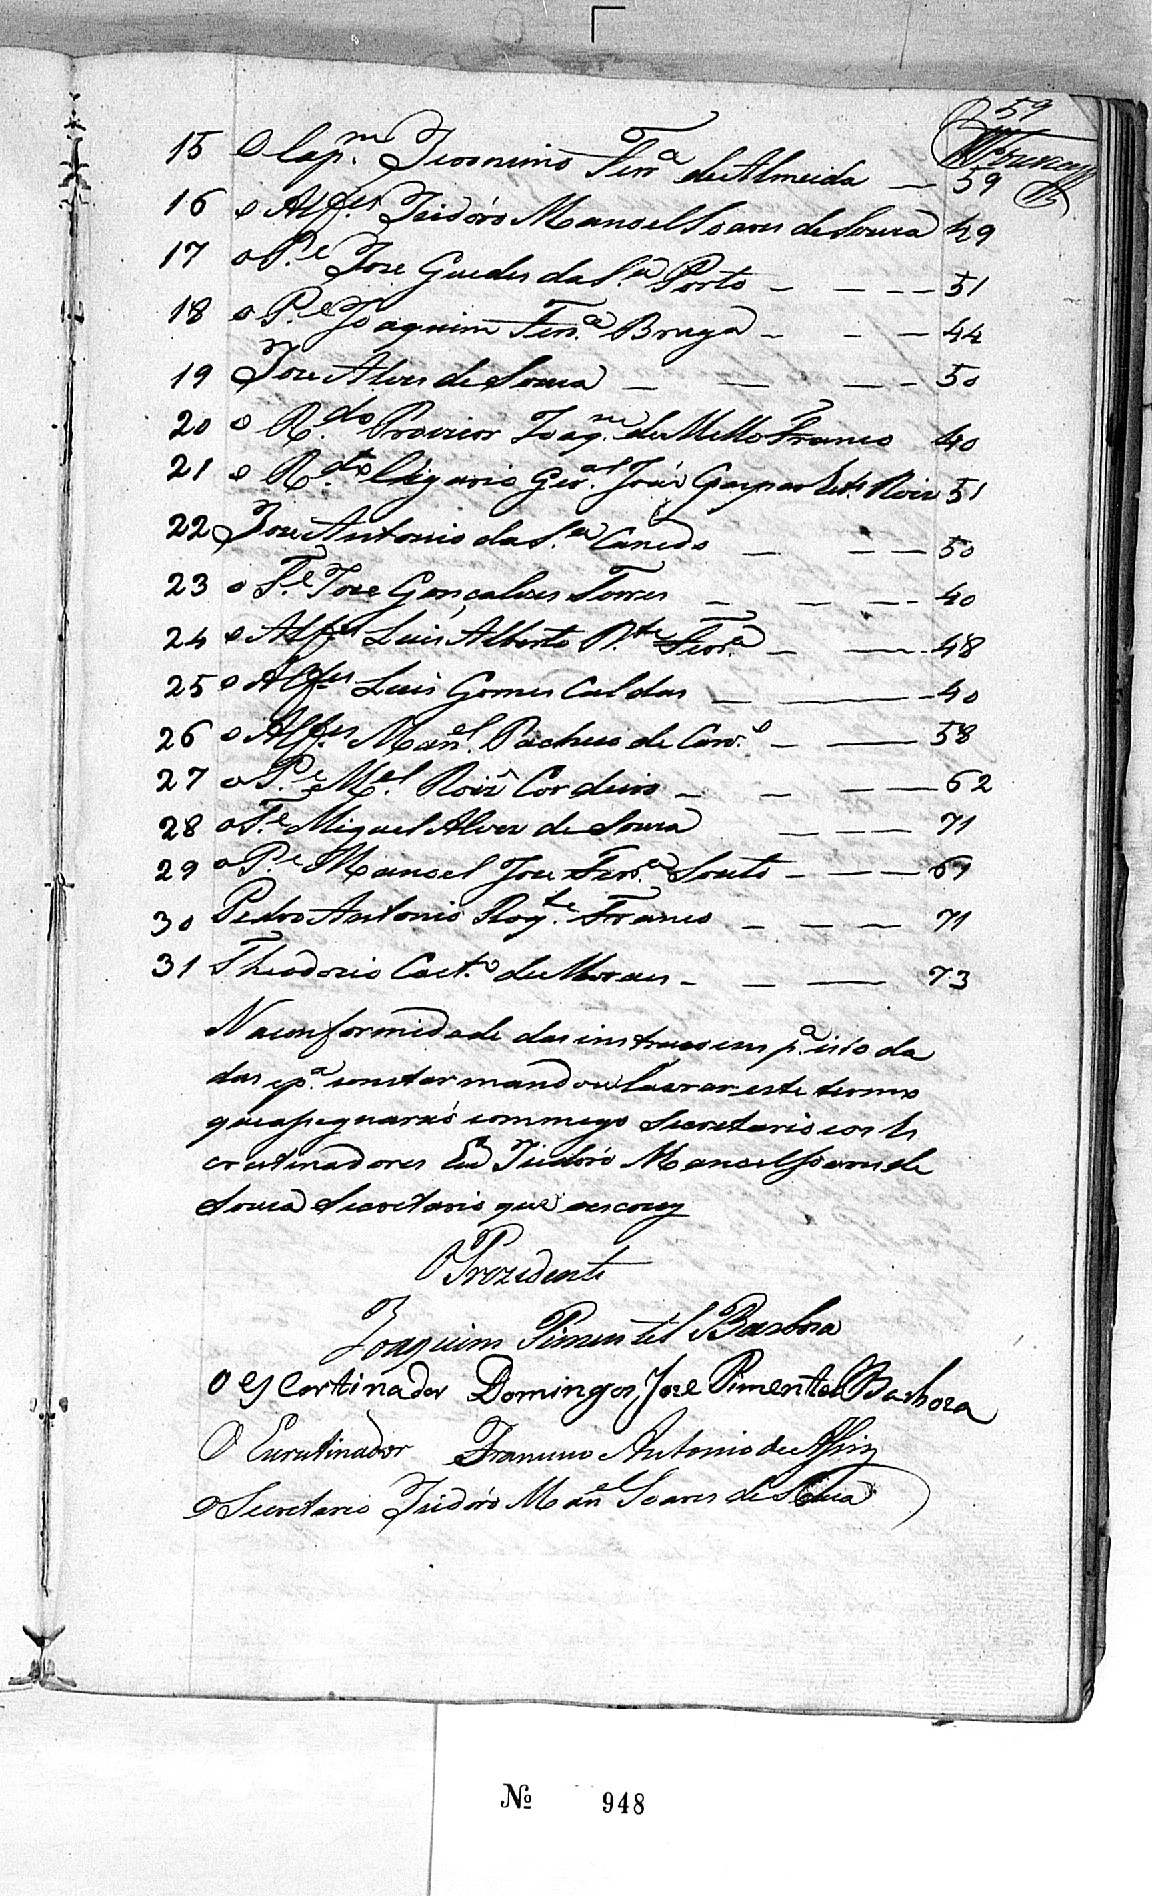 59
15 O Cap.m Jeronimo Ferr.a de Almeida — 59
16 o Alf.es Isidóro Manoel Soares de Souza 49
17 o P.e Joze Guedes da S.a Porto - — — — 51
18 o P.e Joaquim Ferr.a Braga - - — 44
19 Joze Alves de Souza — — — - 50
20 o R.do Provizor Joaq.m de Mello Franco 40
21 o R.do Vigario Ger.al José Gaspar Roiz 51
22 Joze Antonio da S.a Canedo — — — 50
23 o T.e Joze Gonçalves Torres — — — - 40
24 o Alf.es Luis Alberto P.to Ferr.a — — - 48
25 o Alf.es Luis Gomes Caldas — — - 40
26 o Alf.es Man.el Pacheco de Carv.o - — 58
27 o P.e M.el Roiz Cordeiro — - — — 62
28 o T.e Miguel Alves de Souza — — — 71
29 o P.e Manoel Joze Ferr.a Souto - — — 69
30 Pedro Antonio Roq.te Franco — — — 71
31 Theodozio Caet.o de Moraes - — — 73
Na conformidade das instrucoens p.a isto da
das e p.a constar mandou lavrar este termo
que asignaraó commego Secretario e os Is
crutinadores Eu Isidóro Manoel Soares de
Souza Secretario que oescrevy
O Prezidente
Joaquim Pimentel Barboza
O escortinador Domingos Joze Pimentel Barboza
O Escrutinador Francisco Antonio de Assiz
o Secretario Isidóro Man.el Soares de Souza
№ 948